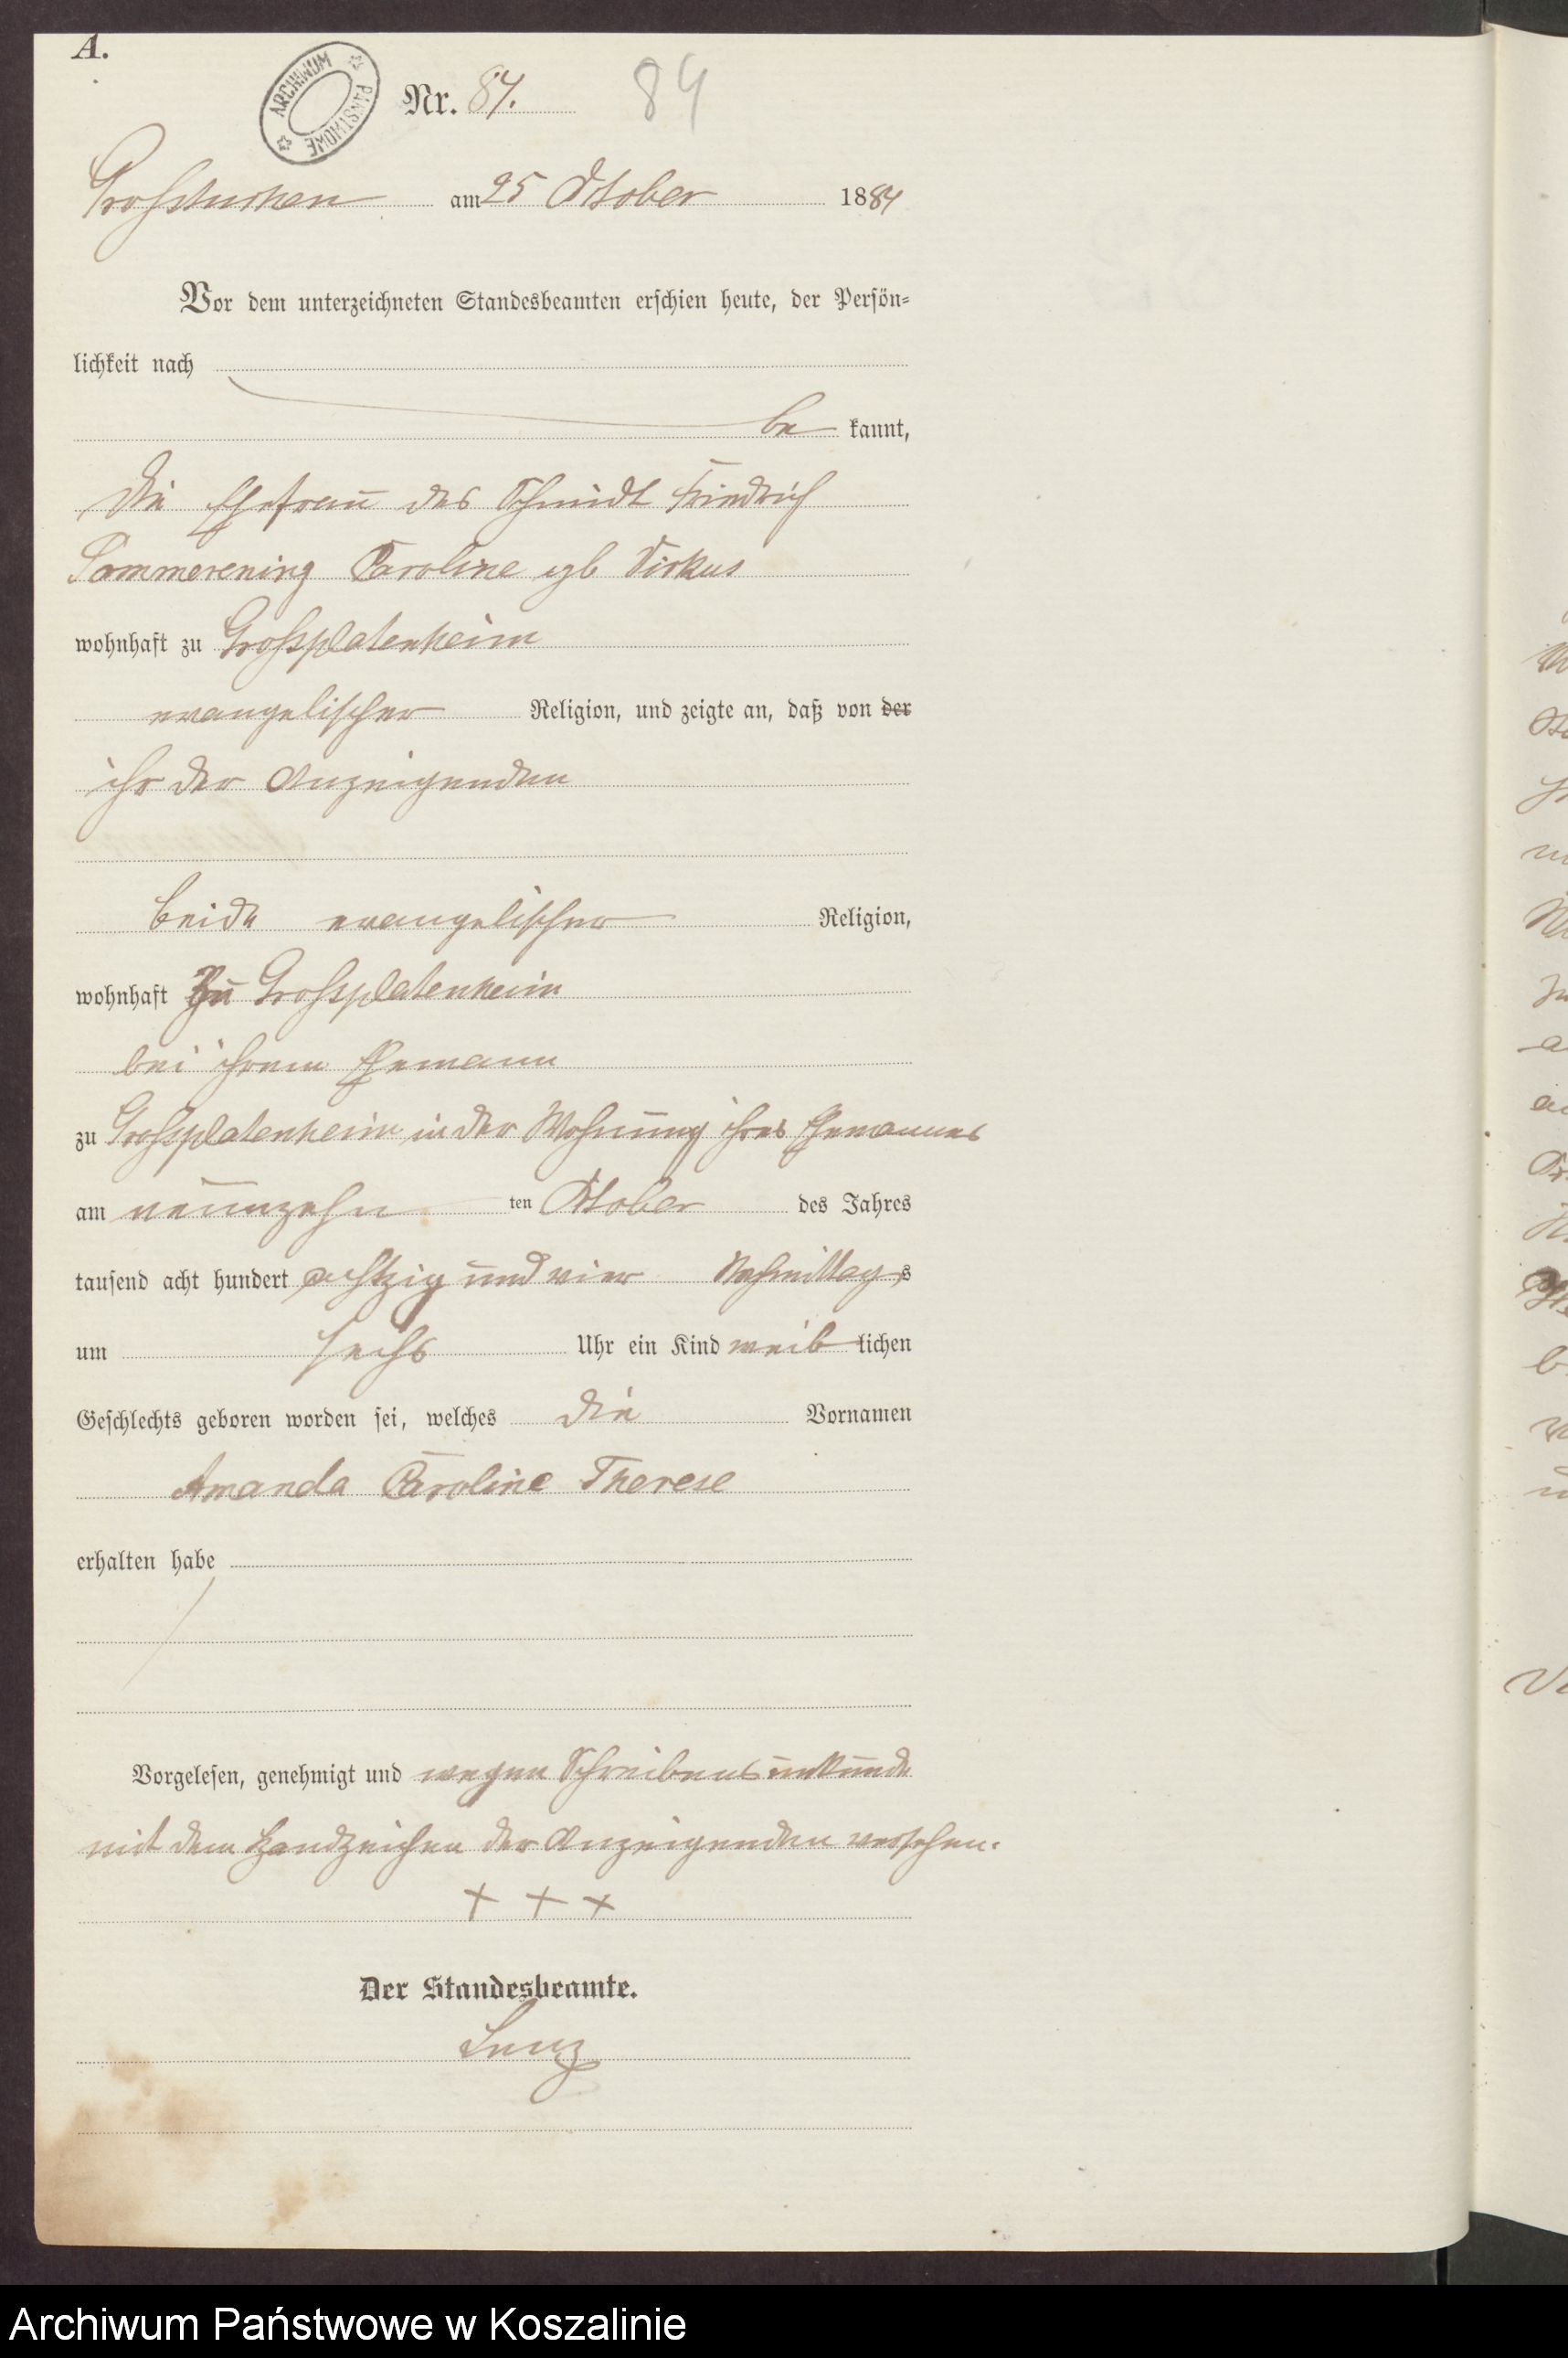 A.
ARCHIWUM PAŃSTWOWE
Nr. 84. 84
Grosstuchen am 25 October 1884
Vor dem unterzeichneten Standesbeamten erschien heute, der Persön-
lichkeit nach
be kannt,
die Ehefrau des Schmidt Friedrich
Pommerening Caroline geb Virkus
wohnhaft zu Grossplatenheim
evangelischer Religion, und zeigte an, daß von der
ihr der Anzeigenden
beide evangelischer Religion,
wohnhaft zu Grossplatenheim
bei ihrem Ehemann
zu Grossplatenheim in der Wohnung ihres Ehemannes
am neunzehn ten October des Jahres
tausend acht hundert achtzig und vier Nachmittags
um sechs Uhr ein Kind weib lichen
Geschlechts geboren worden sei, welches die Vornamen
Amanda Caroline Therese
erhalten habe
Vorgelesen, genehmigt und wegen Schreibensunkunde
mit dem Handzeichen der Anzeigenden versehen.
+ + +
Der Standesbeamte.
Lenz
Archiwum Państwowe w Koszalinie